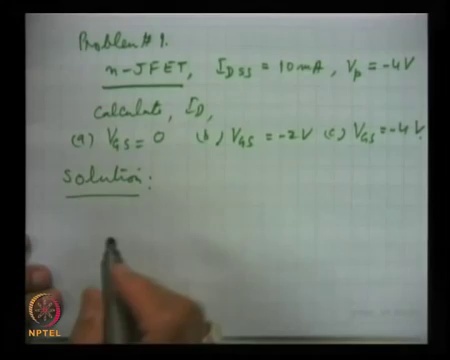 Problem # 1.
n-JFET, IDSS = 10mA, Vp = -4V
Calculate, ID,
(a) VGS = 0 (b) VGS = -2V (c) VGS = -4V.
Solution:
NPTEL